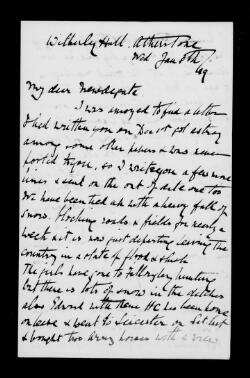 Witherley Hall. Atherstone
Wed Jan 8th/
49
My dear Newdegate
I was annoyed to find a letter
I had written you on got astray
among some other papers & was never
posted to you, so I write you a few more
lines & send on the out of date one too
We have been tied up with a heavy fall of
snow. blocking roads & fields for nearly a
week & it is now just departing leaving the
country in a state of flood & slush
The girls have gone to hunting
but there is lots of snow in the ditches
also Edward with them HC has been home
on leave & went to Leicester on Sat last
& bought two Army horses with a view